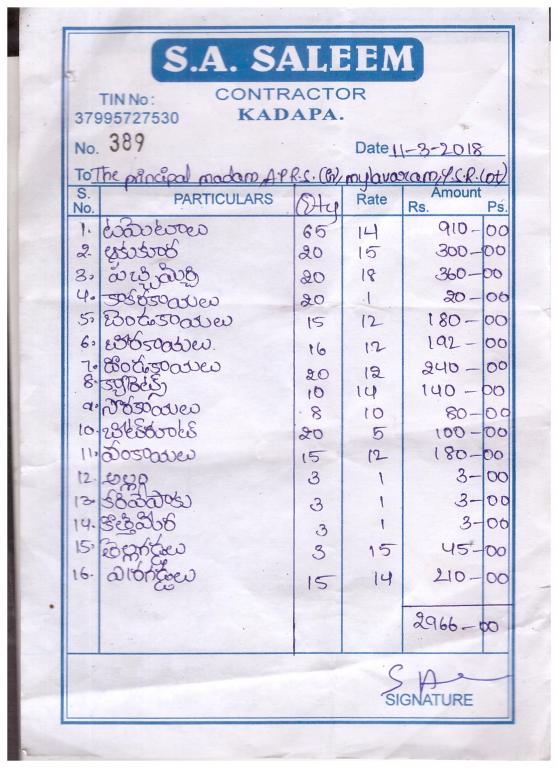 S.A. SALEEM
CONTRACTOR
KADAPA.
TIN No :
37995727530
No. 389
Date 11-3-2018
To The principal madam, A.P.R.S. (G), mylavaram, Y.S.R. (Dt)
S. No. PARTICULARS Qty Rate Amount Rs. Ps.
1. టమోటాలు 65 14 910-00
2. ఆకుకూర 20 15 300-00
3. పచ్చిమిర్చి 20 18 360-00
4. కాకరకాయలు 20 1 20-00
5. బెండకాయలు 15 12 180-00
6. బీరకాయలు 16 12 192-00
7. దొండకాయలు 20 12 240-00
8. క్యారెట్స్ 10 14 140-00
9. సొరకాయలు 8 10 80-00
10. బీట్‌రూట్ 20 5 100-00
11. వంకాయలు 15 12 180-00
12. అల్లం 3 1 3-00
13. కరివేపాకు 3 1 3-00
14. కొత్తిమీర 3 1 3-00
15. తెల్లగడ్డలు 3 15 45-00
16. ఎర్రగడ్డలు 15 14 210-00
2966-00
SIGNATURE